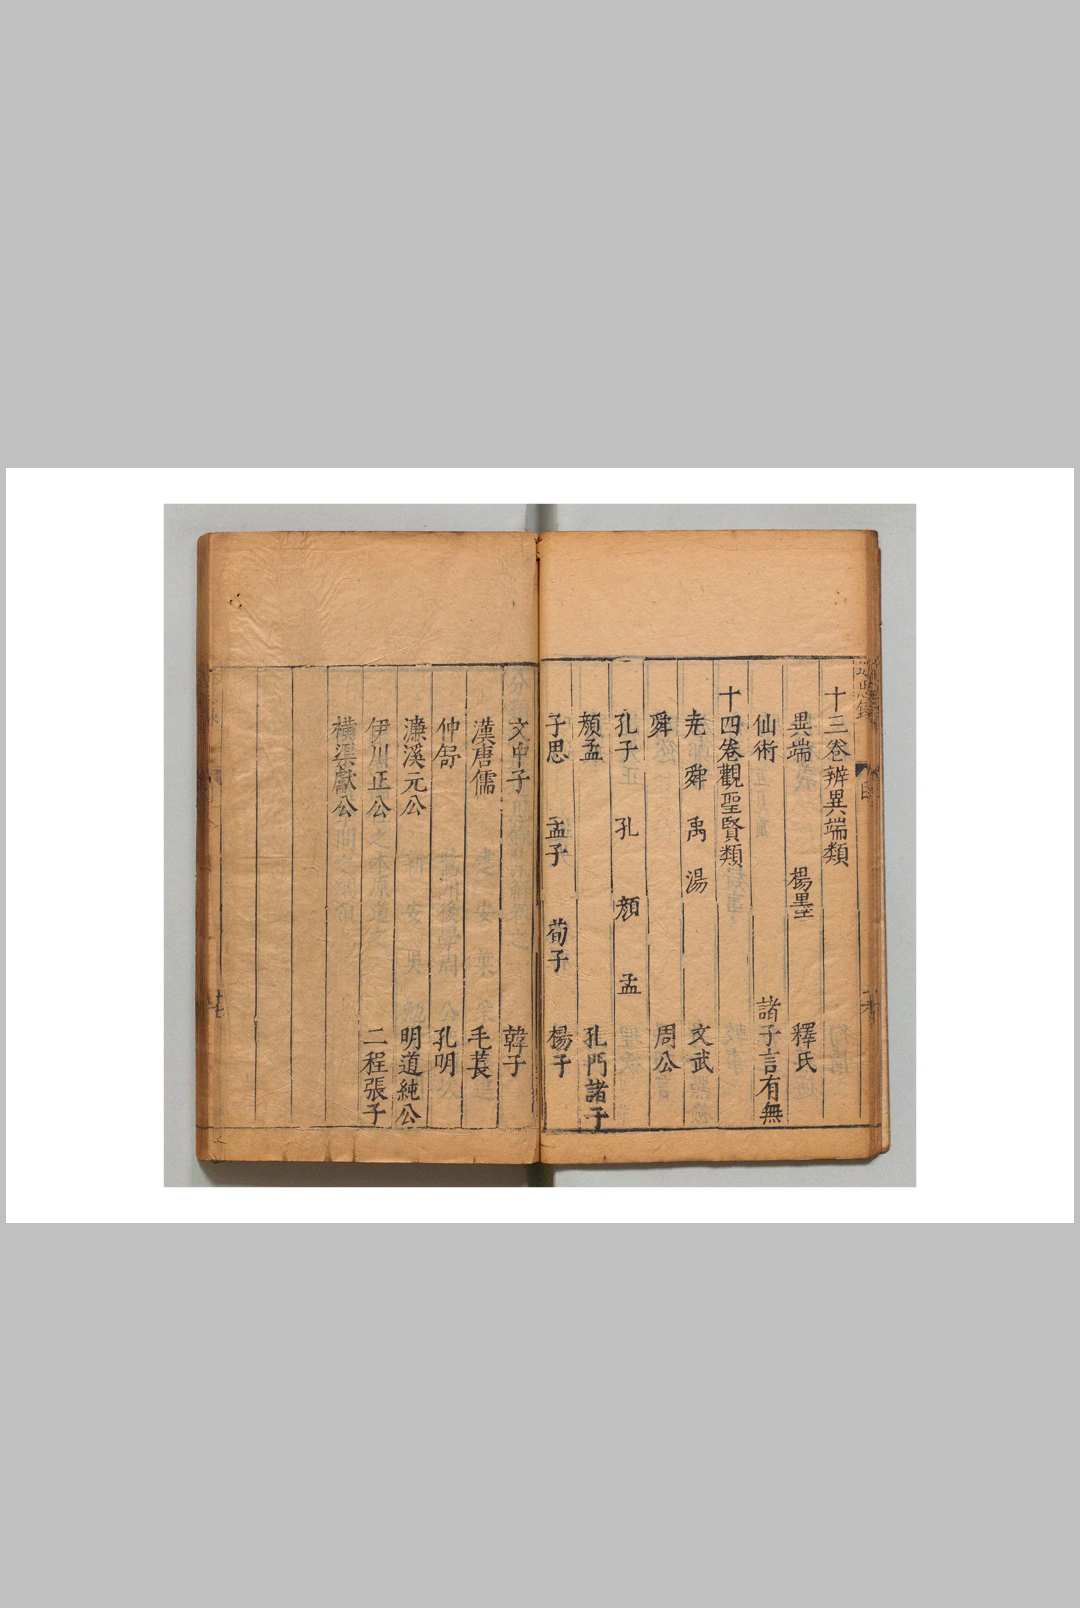 十三卷辨異端類
異端 楊墨 釋氏
仙術 諸子言有無
十四卷觀聖賢類
尭舜禹湯 文武
舜 周公
孔子 孔顔孟
顔孟 孔門諸子
子思 孟子 荀子 楊子
文中子 韓子
漢唐儒 毛萇
仲舒 孔明
濂溪元公 明道純公
伊川正公 二程張子
橫渠獻公